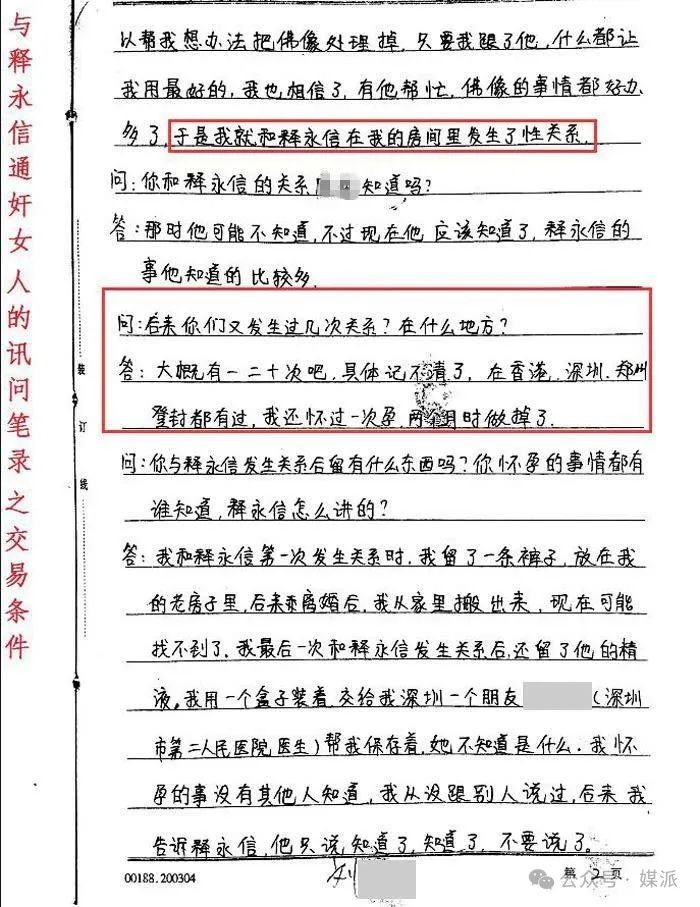 与释永信通奸女人的讯问笔录之交易条件
以帮我想办法把佛像处理掉，只要我跟了他，什么都让
我用最好的，我也相信了，有他帮忙，佛像的事情都好办
多了，于是我就和释永信在我的房间里发生了性关系。
问：你和释永信的关系 知道吗？
答：那时他可能不知道，不过现在他应该知道了，释永信的
事他知道的比较多。
问：后来你们又发生过几次关系？在什么地方？
答：大概有一二十次吧，具体记不清了，在香港、深圳、郑州
登封都有过，我还怀过一次孕，两个月时做掉了。
问：你与释永信发生关系后留有什么东西吗？你怀孕的事情都有
谁知道，释永信怎么讲的？
答：我和释永信第一次发生关系时，我留了一条裤子，放在我
的老房子里，后来 离婚后，我从家里搬出来，现在可能
找不到了，我最后一次和释永信发生关系后，还留了他的精
液，我用一个盒子装着 交给我深圳一个朋友 （深圳
市第二人民医院医生）帮我保存着，她不知道是什么。我怀
孕的事没有其他人知道，我从没跟别人说过，后来我
告诉释永信，他只说知道了，知道了，不要说了。
装
订
线
00188.200304
刘
第 2 页
公众号·媒派